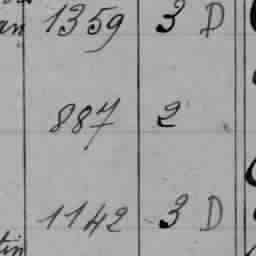 an 1359 3 D
887 2
1142 3 D
tin